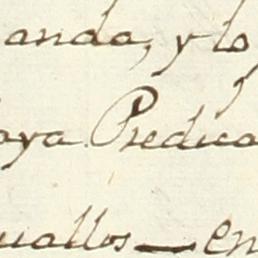 anda, y lo
aya Predica
uallos — en